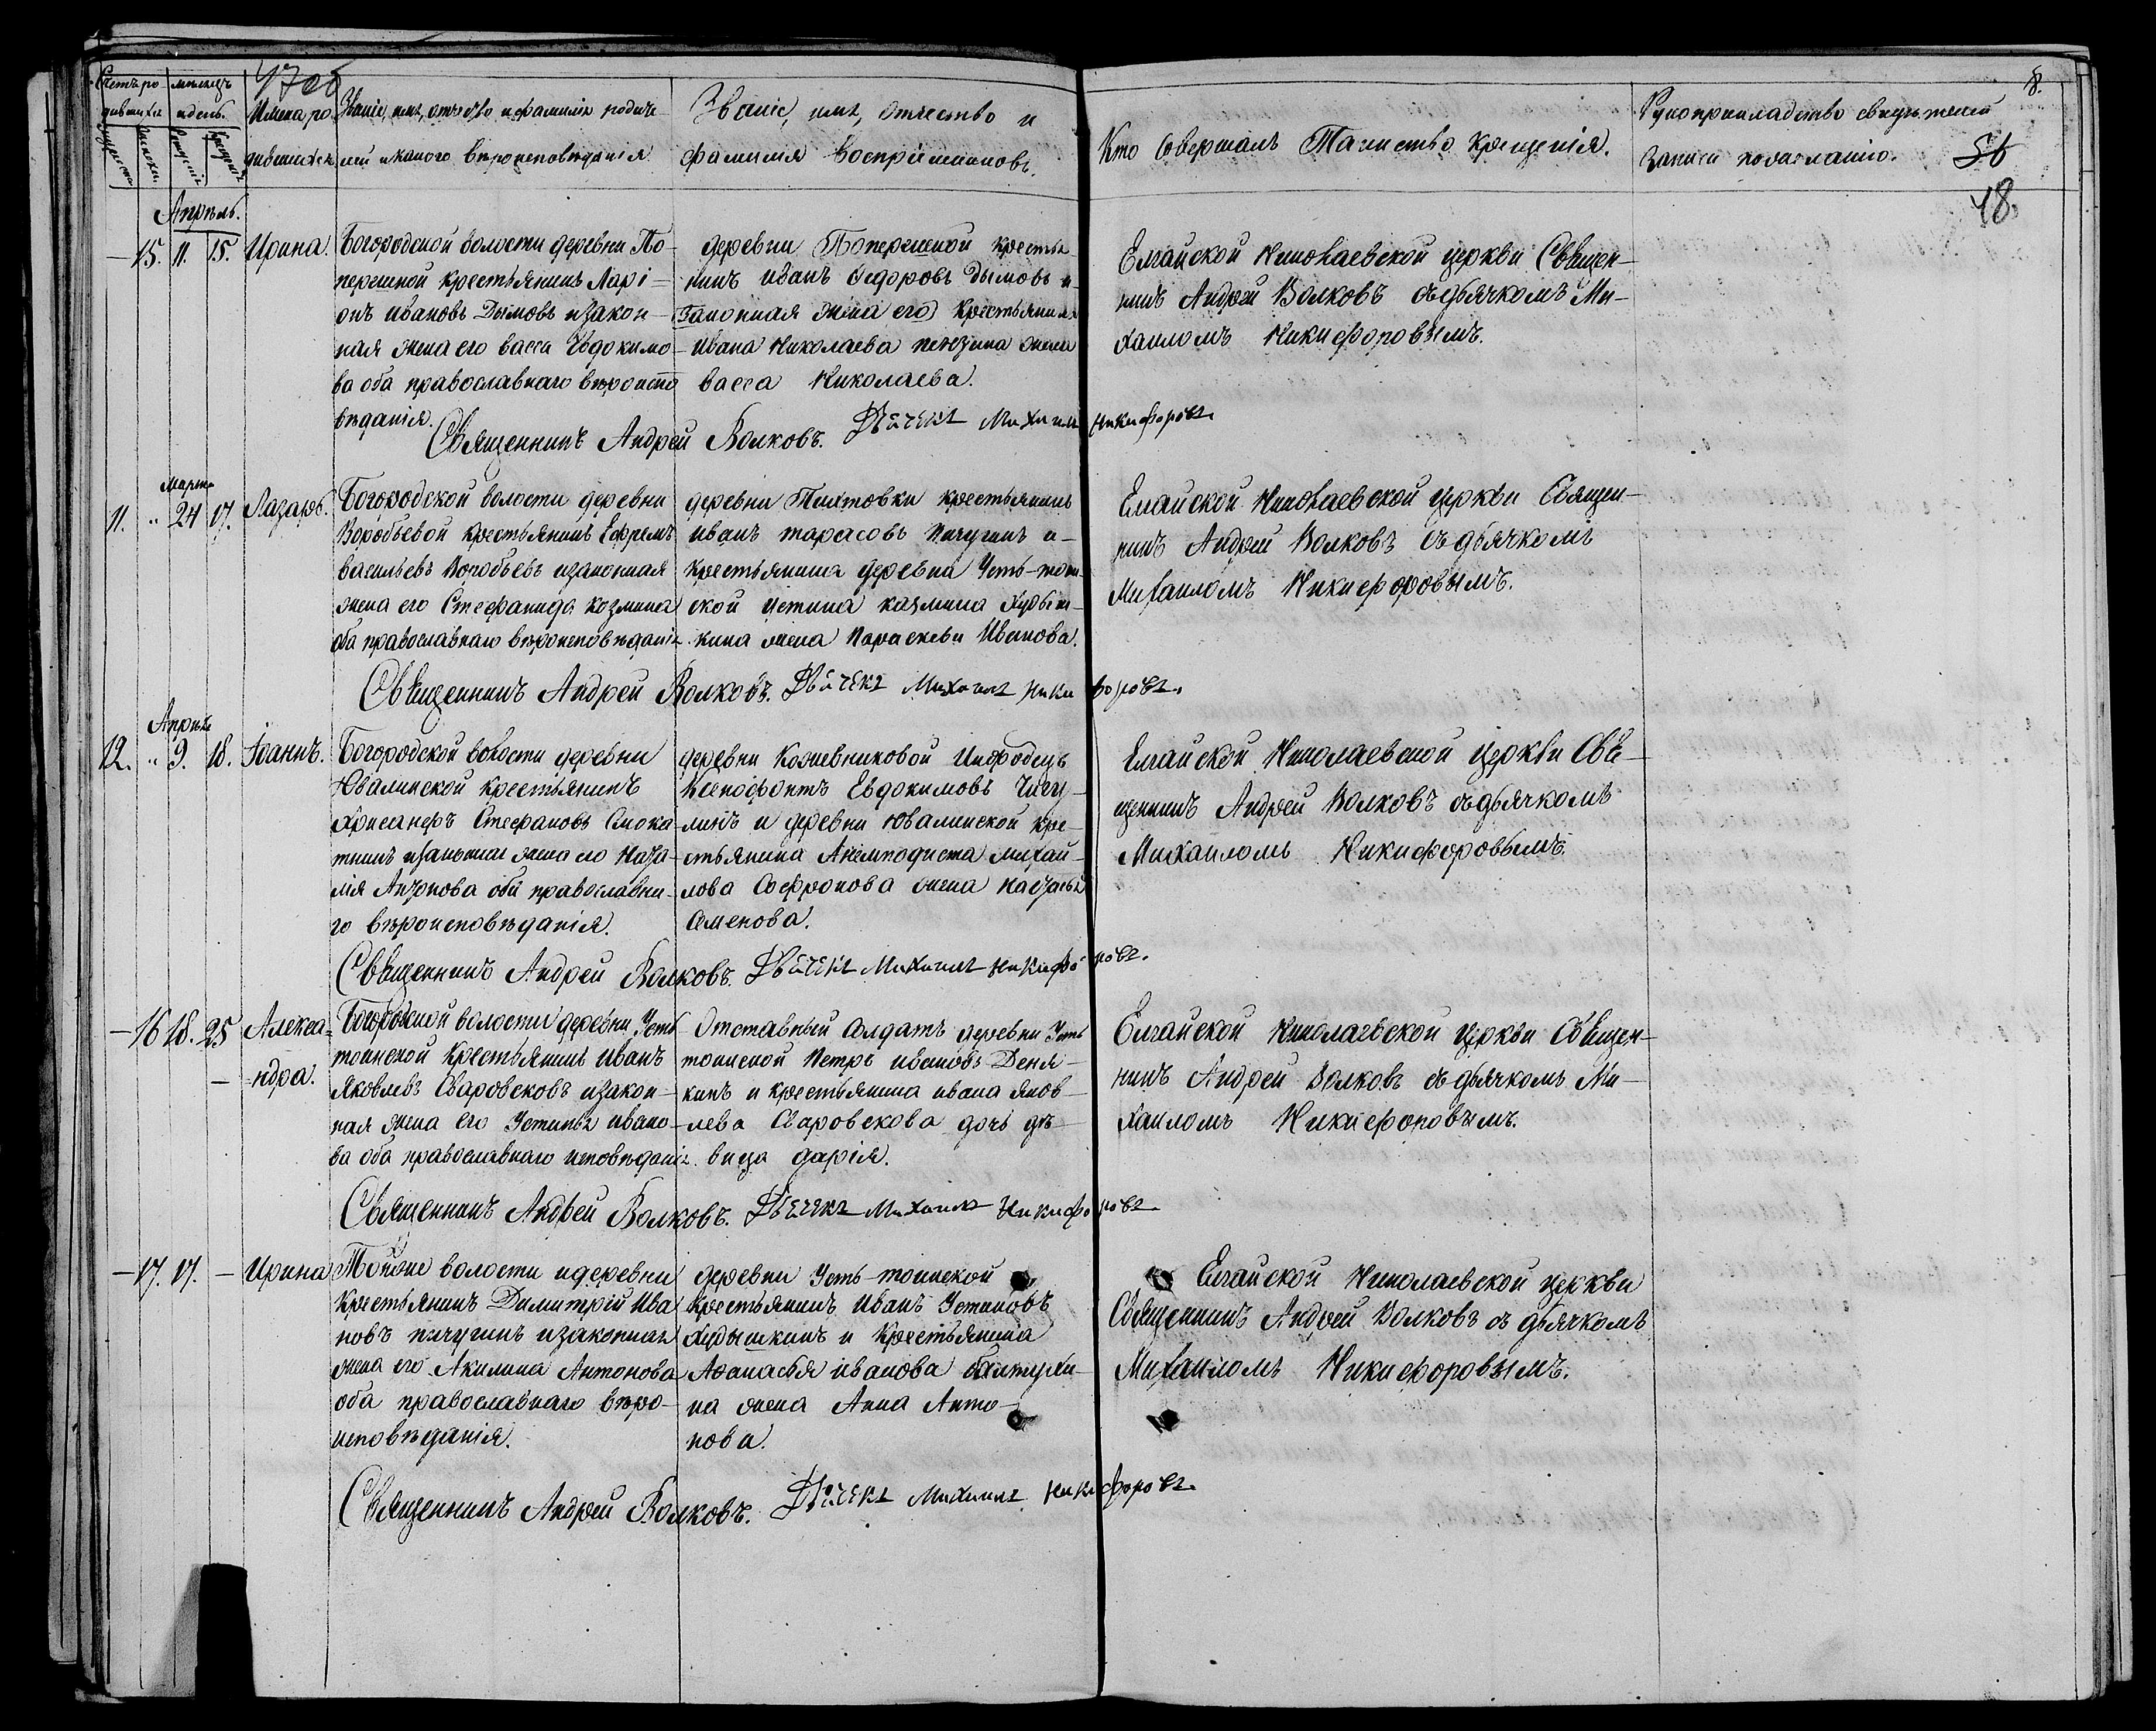 47об
Счетъ родившихся
мѣсяцъ и день.
Имена родившихся
Званіе, имя, отчество и фамилія родителей и какого вѣроисповѣданія
Званіе, имя, отчество и фамилія воспріемниковъ.
Кто совершалъ Таинство крещенія.
Рукоприкладство свидѣтелей записи по желанію.
8.
48.
Апрѣль.
— 15. 11. 15. Ирина.
Богородской волости деревни По-
перешной крестьянинъ Ларі-
онъ Ивановъ Дымовъ и закон-
ная жена его васса Евдокимо-
ва оба православнаго вѣроиспо
вѣданія.
деревни Поперешной крестья-
нинъ Иванъ Федоровъ Дымовъ и
крестьянина
Ивана Николаева жена
васса Николаева.
Елгайской Николаевской церкви Священ-
никъ Андрей Волковъ съ дьячкомъ Ми-
хаиломъ Никифоровымъ.
Священникъ Андрей Волковъ. Дьячекъ Михаилъ Никифоровъ.
Марта
11. " 24 17. Лазарь.
Богородской волости деревни
Воробьевой крестьянинъ Ефремъ
васильевъ Воробьевъ и законная
жена его Стефанида козмина
оба православнаго вѣроисповѣданія.
деревни Пихтовки крестьянинъ
Иванъ тарасовъ Пичугинъ и-
крестьянина деревни Усть-тоин-
ской Устина казмина Худыш-
кина жена Параскева Иванова.
Елгайской Николаевской церкви Священ-
никъ Андрей Волковъ съ дьячкомъ
Михаиломъ Никифоровымъ.
Священникъ Андрей Волковъ. Дьячекъ Михаилъ Никифоровъ.
Апрѣля
12. " 9. 18. Іоаннъ.
Богородской волости деревни
Ювалинской крестьянинъ
Хрисанфъ Стефановъ Смока-
тинъ и законная жена его Ната-
лія Антонова оба православна-
го вѣроисповѣданія.
деревни Кожевниковой Инородецъ
Ксенофонтъ Евдокимовъ Чигу-
линъ и деревни Ювалинской кре-
стьянина Акемподиста михай-
лова Софронова жена наталья
Семенова.
Елгайской Николаевской церкви Свя-
щенникъ Андрей Волковъ съ дьячкомъ
Михаиломъ Никифоровымъ.
Священникъ Андрей Волковъ. Дьячекъ Михаилъ Никифоровъ.
— 16 18. 25 Алекса=
— =ндра.
Богородской волости деревни Усть
тоинской крестьянинъ Иванъ
Яковлевъ Сваровсковъ и закон-
ная жена его Устинья Ивано-
ва оба православнаго исповѣданія.
Отставный Солдатъ деревни Усть
тоинской Петръ ивановъ Деня-
кинъ и крестьянина ивана Яков-
лева Сваровскова дочь дѣ-
вица дарія.
Елгайской Николаевской церкви Священ-
никъ Андрей Волковъ съ дьячкомъ Ми-
хаиломъ Никифоровымъ.
Священникъ Андрей Волковъ. Дьячекъ Михаилъ Никифоровъ.
— 17. 17. — Ирина
Тойже волости и деревни
крестьянинъ Димитрій Ива
новъ пичугинъ и законная
жена его Акилина Антонова
оба православнаго вѣро-
исповѣданія.
деревни Усть-тоинской
крестьянинъ Иванъ Устиновъ
Худышкинъ и крестьянина
Афанасья иванова
на жена Анна Анто-
нова.
Елгайской Николаевской церкви
Священникъ Андрей Волковъ съ дьячкомъ
Михаиломъ Никифоровымъ.
Священникъ Андрей Волковъ. Дьячекъ Михаилъ Никифоровъ.